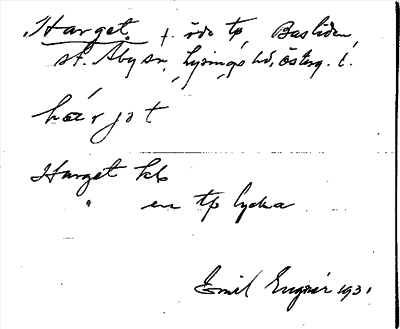 Harget, f. öde tp, Basliden,
st. Åby sn, Lysings hd, Österg. l.
hárjat
Harget kb
" en tp lycka
Emil Engnér 1931